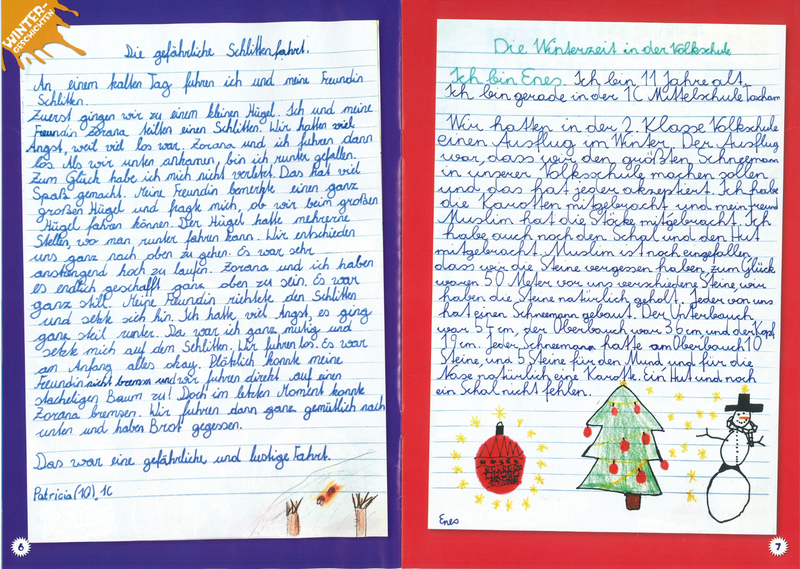 WINTER-
GESCHICHTEN
Die gefährliche Schlittenfahrt.
An einem kalten Tag fuhren ich und meine Freundin
Schlitten.
Zuerst gingen wir zu einem kleinen Hügel. Ich und meine
Freundin Zorana teilten einen Schlitten. Wir hatten viel
Angst, weil viel los war. Zorana und ich fuhren dann
los. Als wir unten ankamen, bin ich runter gefallen.
Zum Glück habe ich mich nicht verletzt. Das hat viel
Spaß gemacht. Meine Freundin bemerkte einen ganz
großen Hügel und fragte mich, ob wir beim großen
Hügel fahren können. Der Hügel hatte mehrere
Stellen, wo man runter fahren kann. Wir entschieden
uns ganz nach oben zu gehen. Es war sehr
anstrengend hoch zu laufen. Zorana und ich haben
es endlich geschafft ganz oben zu sein. Es war
ganz still. Meine Freundin richtete den Schlitten
und setzte sich hin. Ich hatte viel Angst, es ging
ganz steil runter. Da war ich ganz mutig und
setzte mich auf dem Schlitten. Wir fuhren los. Es war
am Anfang alles okay. Plötzlich konnte meine
Freundin nicht bremsen und wir fuhren direkt auf einen
stacheligen Baum zu! Doch im letzten Moment konnte
Zorana bremsen. Wir fuhren dann ganz gemütlich nach
unten und haben Brot gegessen.
Das war eine gefährliche und lustige Fahrt.
Patricia (10), 1C
6
Die Winterzeit in der Volkschule
Ich bin Enes. Ich bin 11 Jahre alt.
Ich bin gerade in der 1C Mittelschule
Wir hatten in der 2. Klasse Volkschule
einen Ausflug im Winter. Der Ausflug
war, dass wir den größten Schneemann
in unserer Volkschule machen sollen
und das hat jeder akzeptiert. Ich habe
die Karotten mitgebracht und mein freund
Muslim hat die Stöcke mitgebracht. Ich
habe auch noch den Schal und den Hut
mitgebracht. Muslim ist noch eingefallen,
dass wir die Steine vergessen haben, zum Glück
waren 50 Meter vor uns verschiedene Steine, wir
haben die Steine natürlich geholt. Jeder von uns
hat einen Schneemann gebaut. Der Unterbauch
war 54 cm, der Oberbauch war 36 cm und der Kopf
19 cm. Jeder Schneemann hatte am Oberbauch 10
Steine, und 5 Steine für den Mund, und für die
Nase natürlich eine Karotte. Ein Hut und noch
ein Schal nicht fehlen.
Enes
7